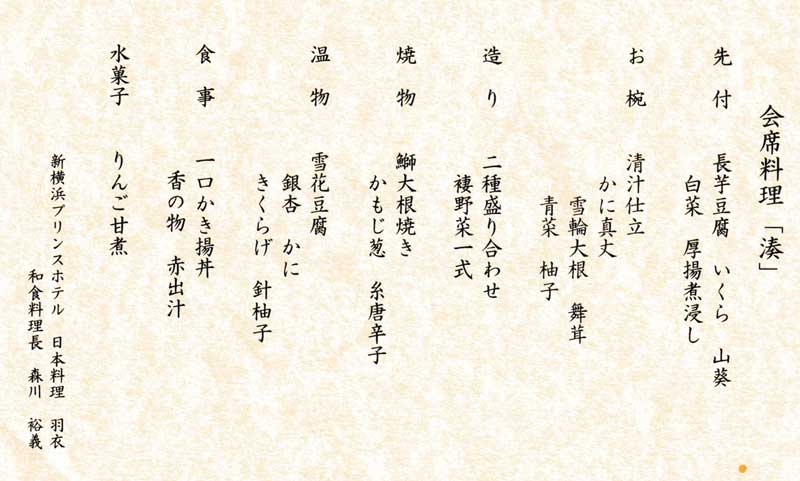 会席料理「湊」
先付 長芋豆腐 いくら 山葵
白菜 厚揚煮浸し
お椀 清汁仕立
かに真丈
雪輪大根 舞茸
青菜 柚子
造り 二種盛り合わせ
褄野菜一式
焼物 鰤大根焼き
かもじ葱 糸唐辛子
温物 雪花豆腐
銀杏 かに
きくらげ 針柚子
食事 一口かき揚丼
香の物 赤出汁
水菓子 りんご甘煮
新横浜プリンスホテル 日本料理 羽衣
和食料理長 森川 裕義